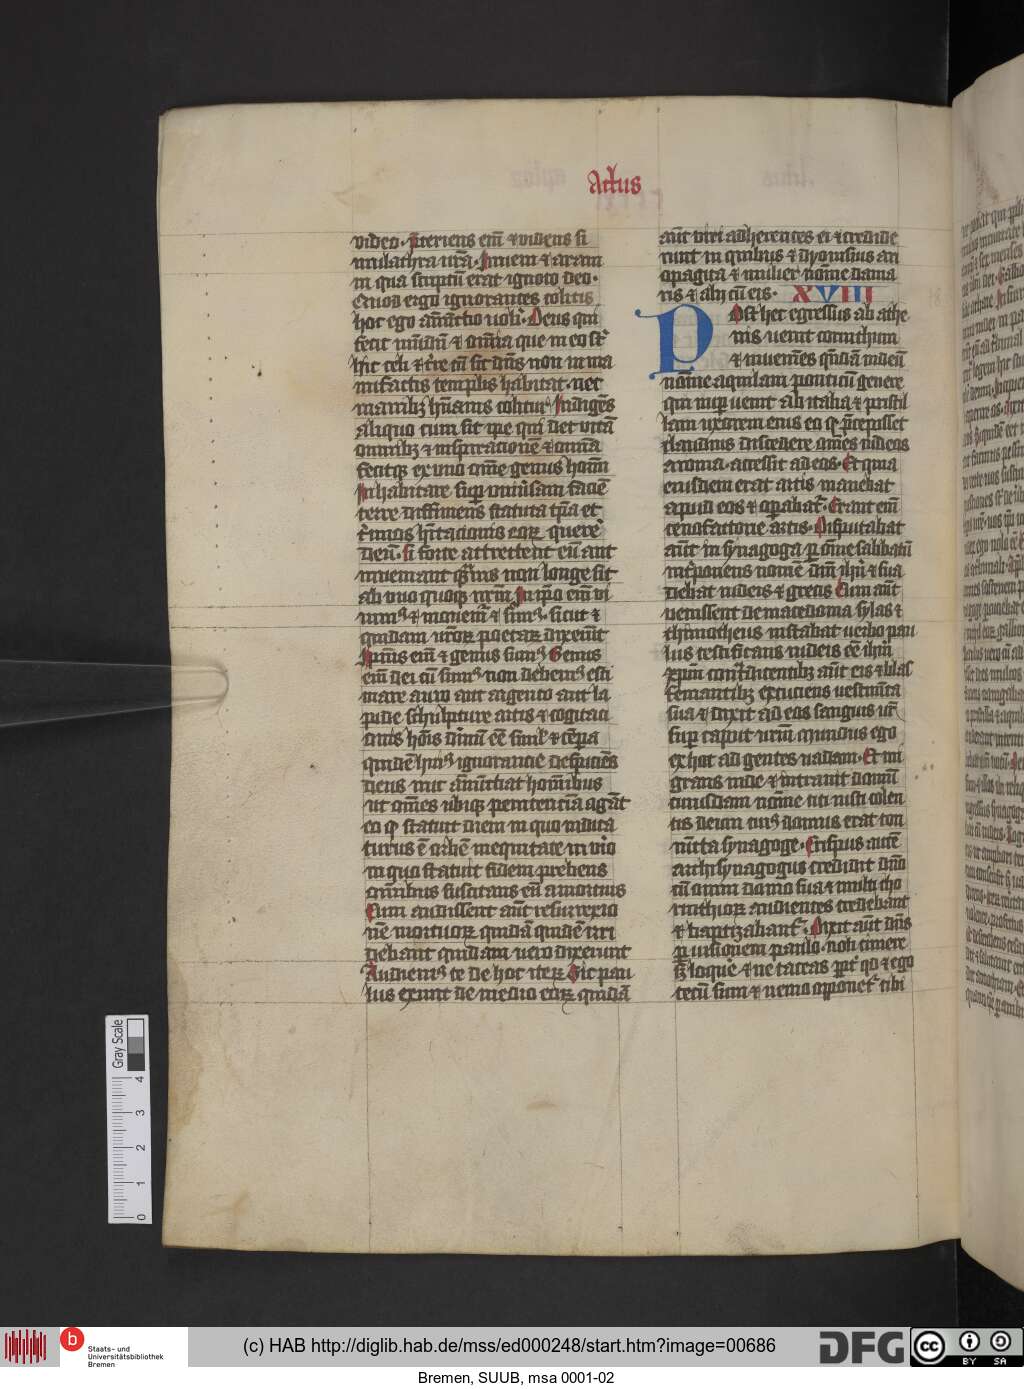 Actus
video. p̄teriens em̄ ⁊ videns si
mulachra vr̄a. Inueni ⁊ aram
in qua sc̄ptū erat ignoto deo.
Quod ergo ignorantes colitis
hoc ego annūctio vob. Deus qui
fecit mūdū ⁊ om̄ia que in eo st̄
hic celi ⁊ t̄re cū sit dn̄s non in ma
nufactis templis habitat. nec
manibꝫ hūanis colitur Indigēs
aliquo cum sit ip̄e qui det vitā
omnibꝫ ⁊ inspirationē ⁊ omnia
fecitqꝫ ex vno om̄e genus homī
Inhabitare suꝑ vniūsam faciē
terre diffiniens statuta tp̄a et
t̄minos hītacionis eoꝝ querer̄
deū. si forte attrectent eū aut
inueniant q̄uis non longe sit
ab vno quoqꝫ nrm̄ In ip̄o em̄ vi
uimꝰ ⁊ mouemur ⁊ sumꝰ. sicut ⁊
quidam vr̄oꝝ poetaꝝ dixerūt
Ipsius em̄ ⁊ genus sumꝰ Genus
em̄ dei cū simꝰ non debemꝰ esti
mare auro aut argento aut la
pide sculpture artis ⁊ cogitaci
onis hoīs diuinū eē simile ⁊ tēpa
quidē huiꝰ ignorancie despiciēs
deus nūc annūctiat hominibus
ut om̄es ubiqꝫ penitenciā agāt
eo ꝙ statuit diem in quo iudica
turus ē orbē inequitate in viro
in quo statuit fidem prebens
omnibus suscitans eū a mortuis
Cum audissent aūt resurrexio
nē mortuoꝝ quidā quidē irri
debant quidam vero dixerunt
Audiemꝰ te de hoc iteꝝ Sic pau
lus exiuit de medio eoꝝ quidā
aūt viri adherentes ei ⁊ credide
runt in quibus ⁊ dyonisius ari
opagita ⁊ mulier nōine dama
ris ⁊ alij cū eis. XVIII
Post hec egressus ab athe
nis venit corinthum
⁊ inueniēs quēdā iudeū
nōine aquilam ponticū genere
qui nuꝑ venit ab italia ⁊ priscil
lam vxorem eius eo ꝙ p̄cepisset
claudius discedere om̄es iudeos
a roma. accessit ad eos. Et quia
eiusdem erat artis manebat
apud eos ⁊ oꝑabatr. Erant em̄
cenofactorie artis. Disputabat
aūt in synagoga ꝑ om̄e sabbatū
int̄ponens nomē dn̄i ih̄u ⁊ sua
debat iudeis ⁊ grecis Cum aūt
venissent de macedonia sylas ⁊
thimotheus instabat verbo pau
lus testificans iudeis eē ih̄m
xp̄m contᵃdicentibꝫ aūt eis ⁊ blas
femantibꝫ excuciens vestimēta
sua ⁊ dixit ad eos sanguis vr̄
suꝑ caput vrm̄ mundus ego
ex hoc ad gentes vadam. Et mi
grans inde ⁊ intrauit domū
cuiusdam nōine titi iusti colen
tis deum cuiꝰ domus erat con
iūcta synagoge. Crispus autē
archisynagogus credidit dn̄o
cū omni domo sua ⁊ multi cho
rinthioꝝ audientes credebant
⁊ baptizabantr. Dixit aūt dn̄s
ꝑ visionem paulo. noli timere
sꝫ loquē ⁊ ne taceas ꝓpt̄ qd ⁊ ego
tecū sum ⁊ nemo apponetr tibi
Gray Scale
4
3
2
1
0
B
Staats- und
Universitätsbibliothek
Bremen
(c) HAB http://diglib.hab.de/mss/ed000248/start.htm?image=00686
DFG
cc
BY SA
Bremen, SUUB, msa 0001-02